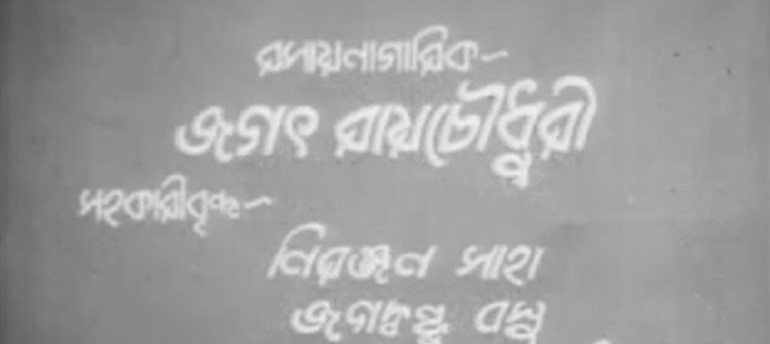 রসায়নাগারিক—
জগৎ রায়চৌধুরী
সহকারীবৃন্দ—
নিরঞ্জন সাহা
জগদ্বন্ধু বসু